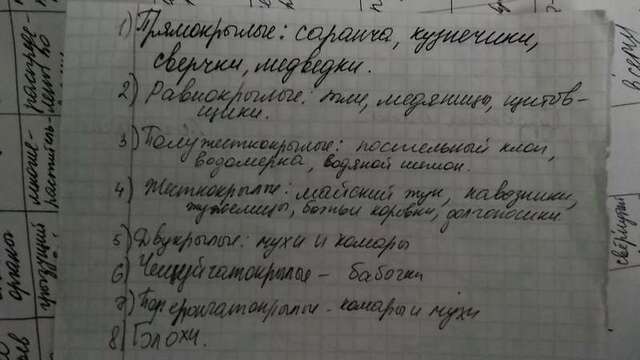 1) Прямокрылые: саранча, кузнечики,
сверчки, медведки.
2) Равнокрылые: тли, медяницы, щитов-
щики.
3) Полужесткокрылые: постельный клоп,
водомерка, водяной
4) Жесткокрылые: майский жук, навозники,
жужелицы, божьи коровки, долгоносики
5) Двукрылые: мухи и комары
6) Чешуйчатокрылые - бабочки
7) - комары и мухи
8) Блохи.